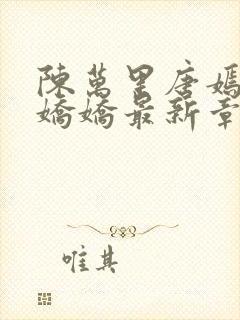 陳萬里唐嫣
嬌嬌最新章
唯其